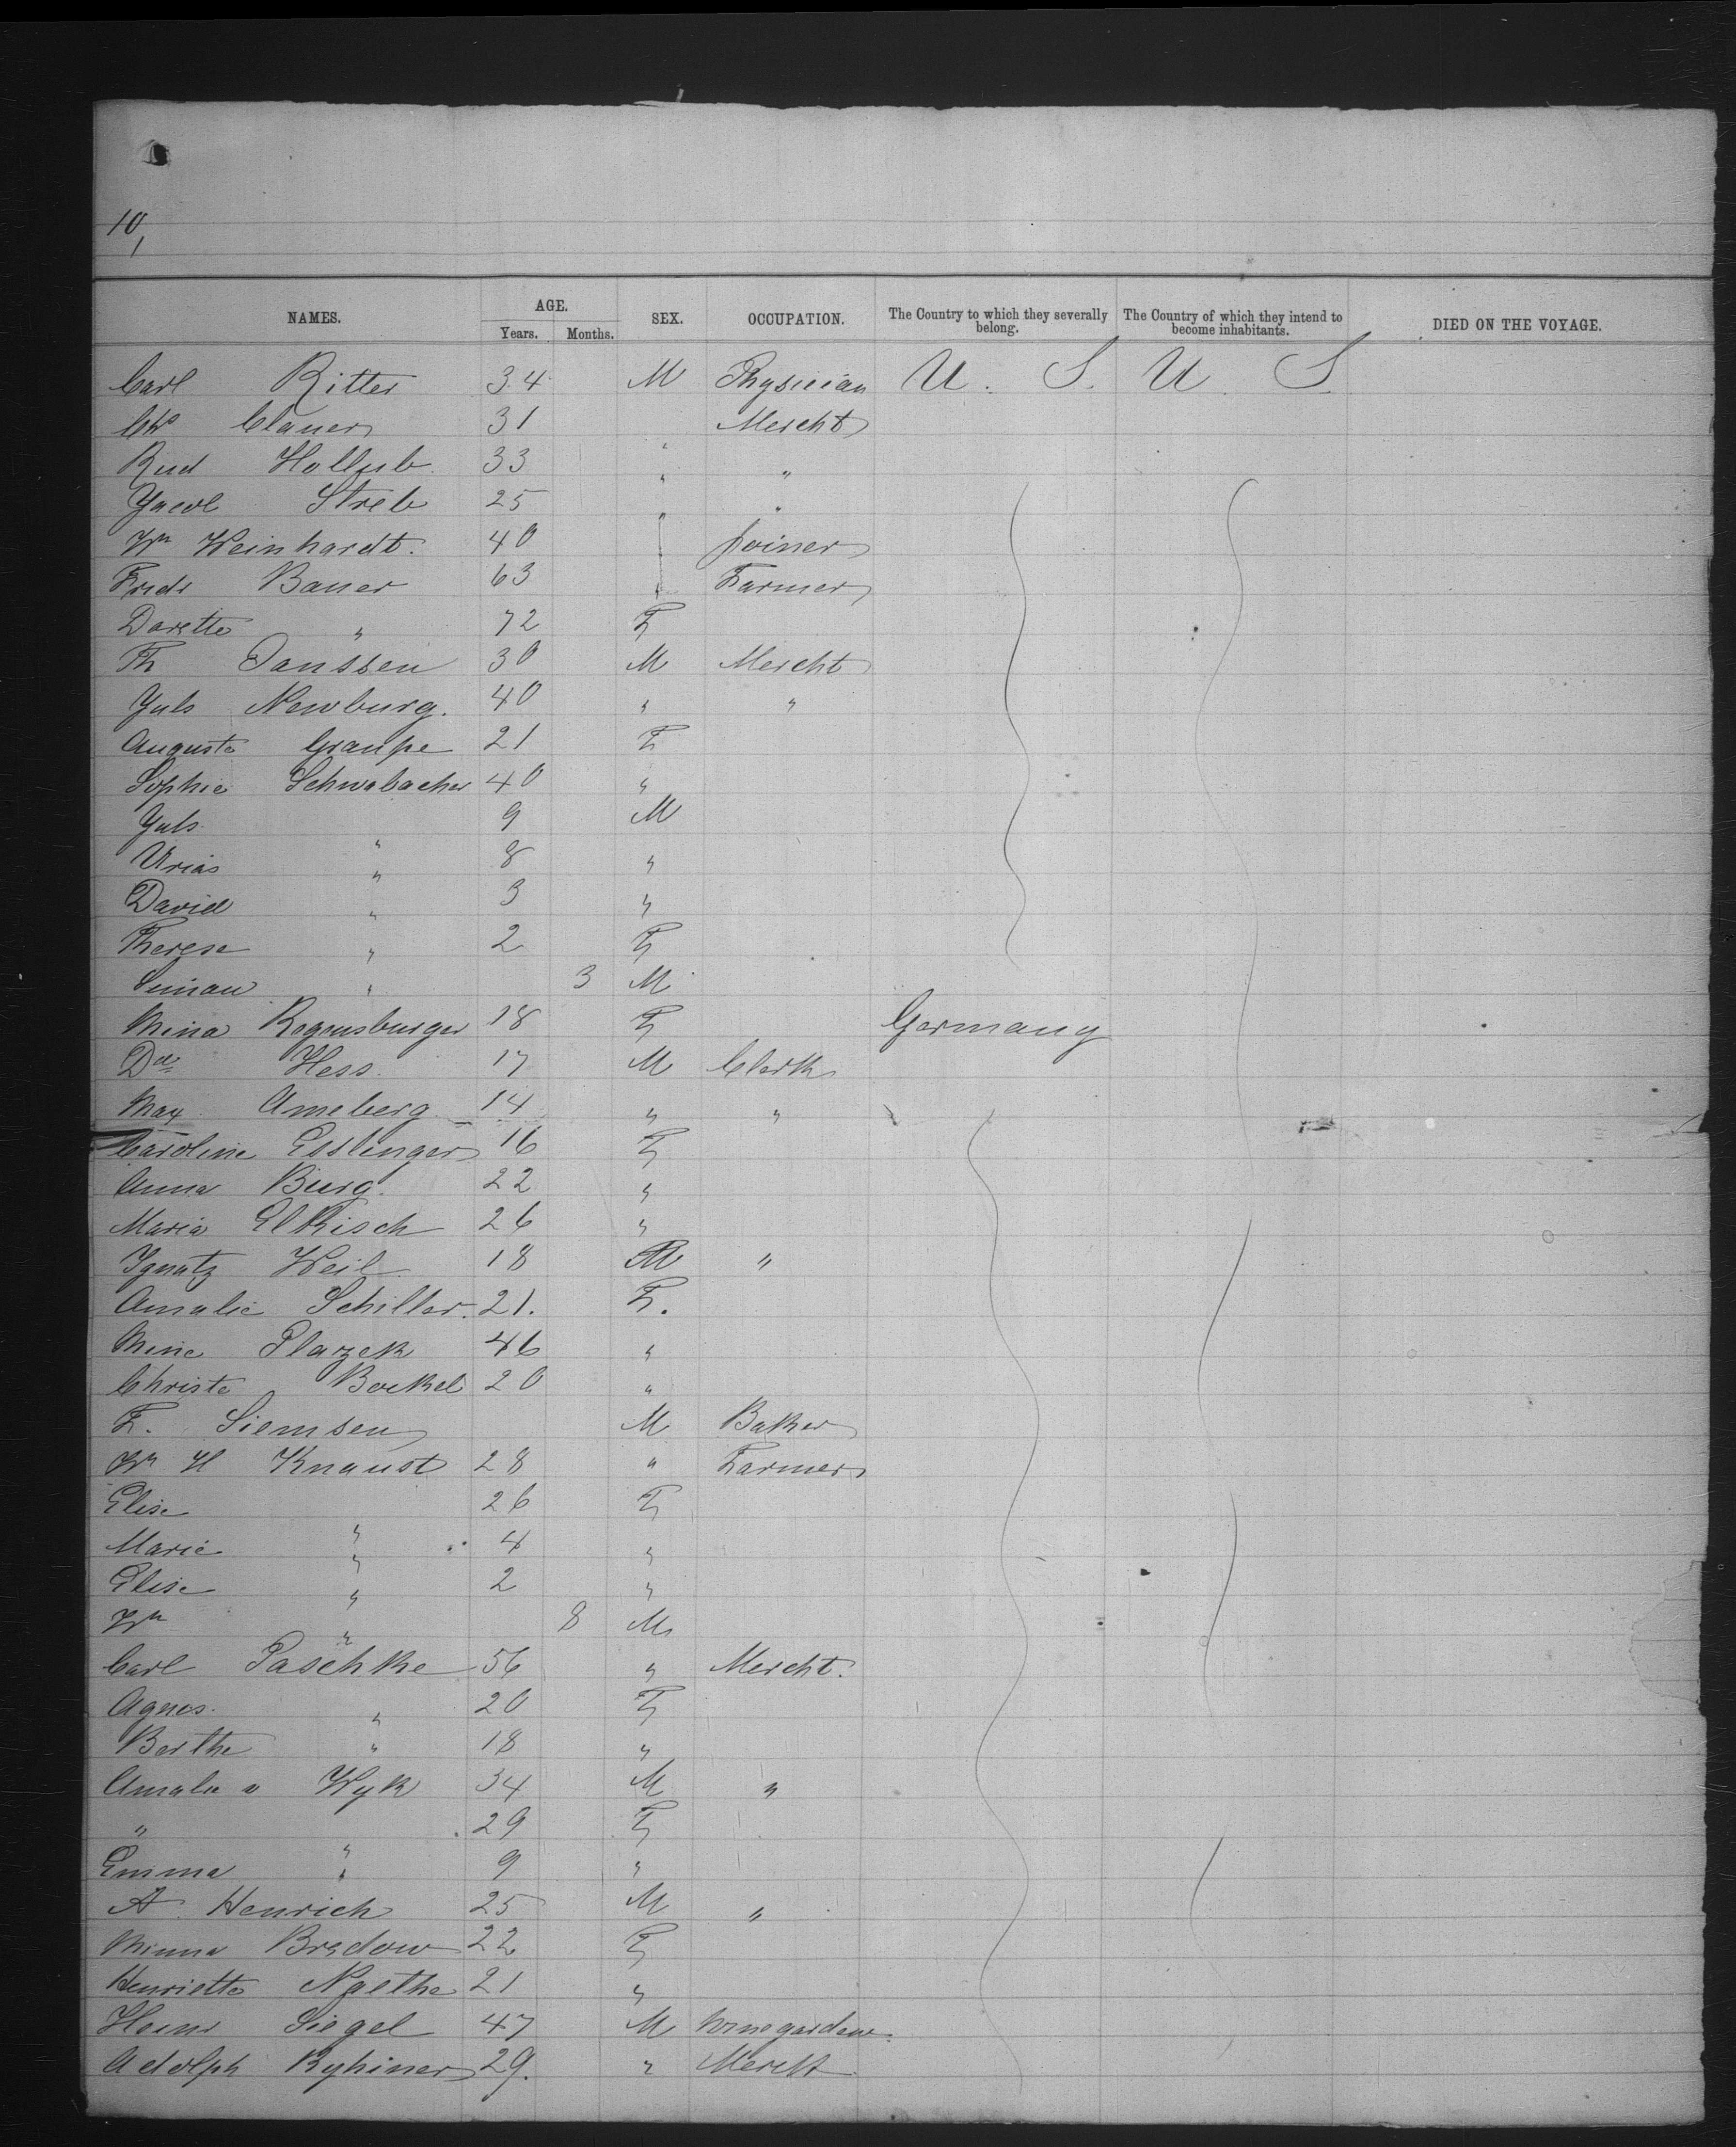 10/1
NAMES. AGE. SEX. OCCUPATION. The Country to which they severally belong. The Country of which they intend to become inhabitants. DIED ON THE VOYAGE.
Years. Months.
Carl Ritter 34 M Physician U. S. U S
Chs Clauer 31 Mercht
Rud Hollub 33 " "
Jacob Streb 25 " "
Wm Weinhardt. 40 Joiner
Fredr Bauer 63 Farmer
Dorette " 72 F
Th Janssen 30 M Mercht
Juls Newburg. 40 " "
Auguste Graupe 21 F
Sophie Schwabacher 40 "
Juls " 9 M
Urias " 8 "
David " 3 "
Therese " 2 F
" 3 M
Mina Regensburger 18 F Germany
Hess 17 M Clerk
Max Ameberg 14 " "
Caroline Esslinger 16 F
Anna Burg. 22 "
Maria Elkisch 26 "
Ignatz Weil 18 M "
Amalie Schiller. 21. F.
Mine Plazek 46 "
Christe Bockel 20 "
F. Siemsen M Baker
Wm H Knaust 28 " Farmer
Elise " 26 F
Marie " 4 "
Elise " 2 "
Wm " 8 M
Carl Paschke 56 " Mercht.
Agnes. " 20 F
Berthe " 18 "
Amalie v Wyk 34 M "
" " 29 F
Emma " 9 "
A Henrich 25 M "
Minna Bredow 22 F
Henriette Naethe 21 "
Heinr Siegel 47 M
Adolph Ryhiner 29. " Mercht